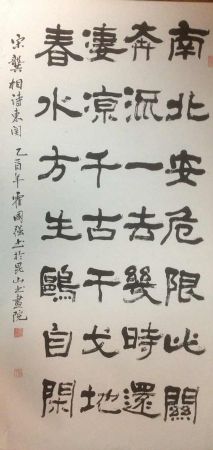 南北安危限此關
奔流一去幾時還
淒涼千古干戈地
春水方生鷗自閑
宋龔相詩東関 乙酉年霍國强书於昆山书畫院